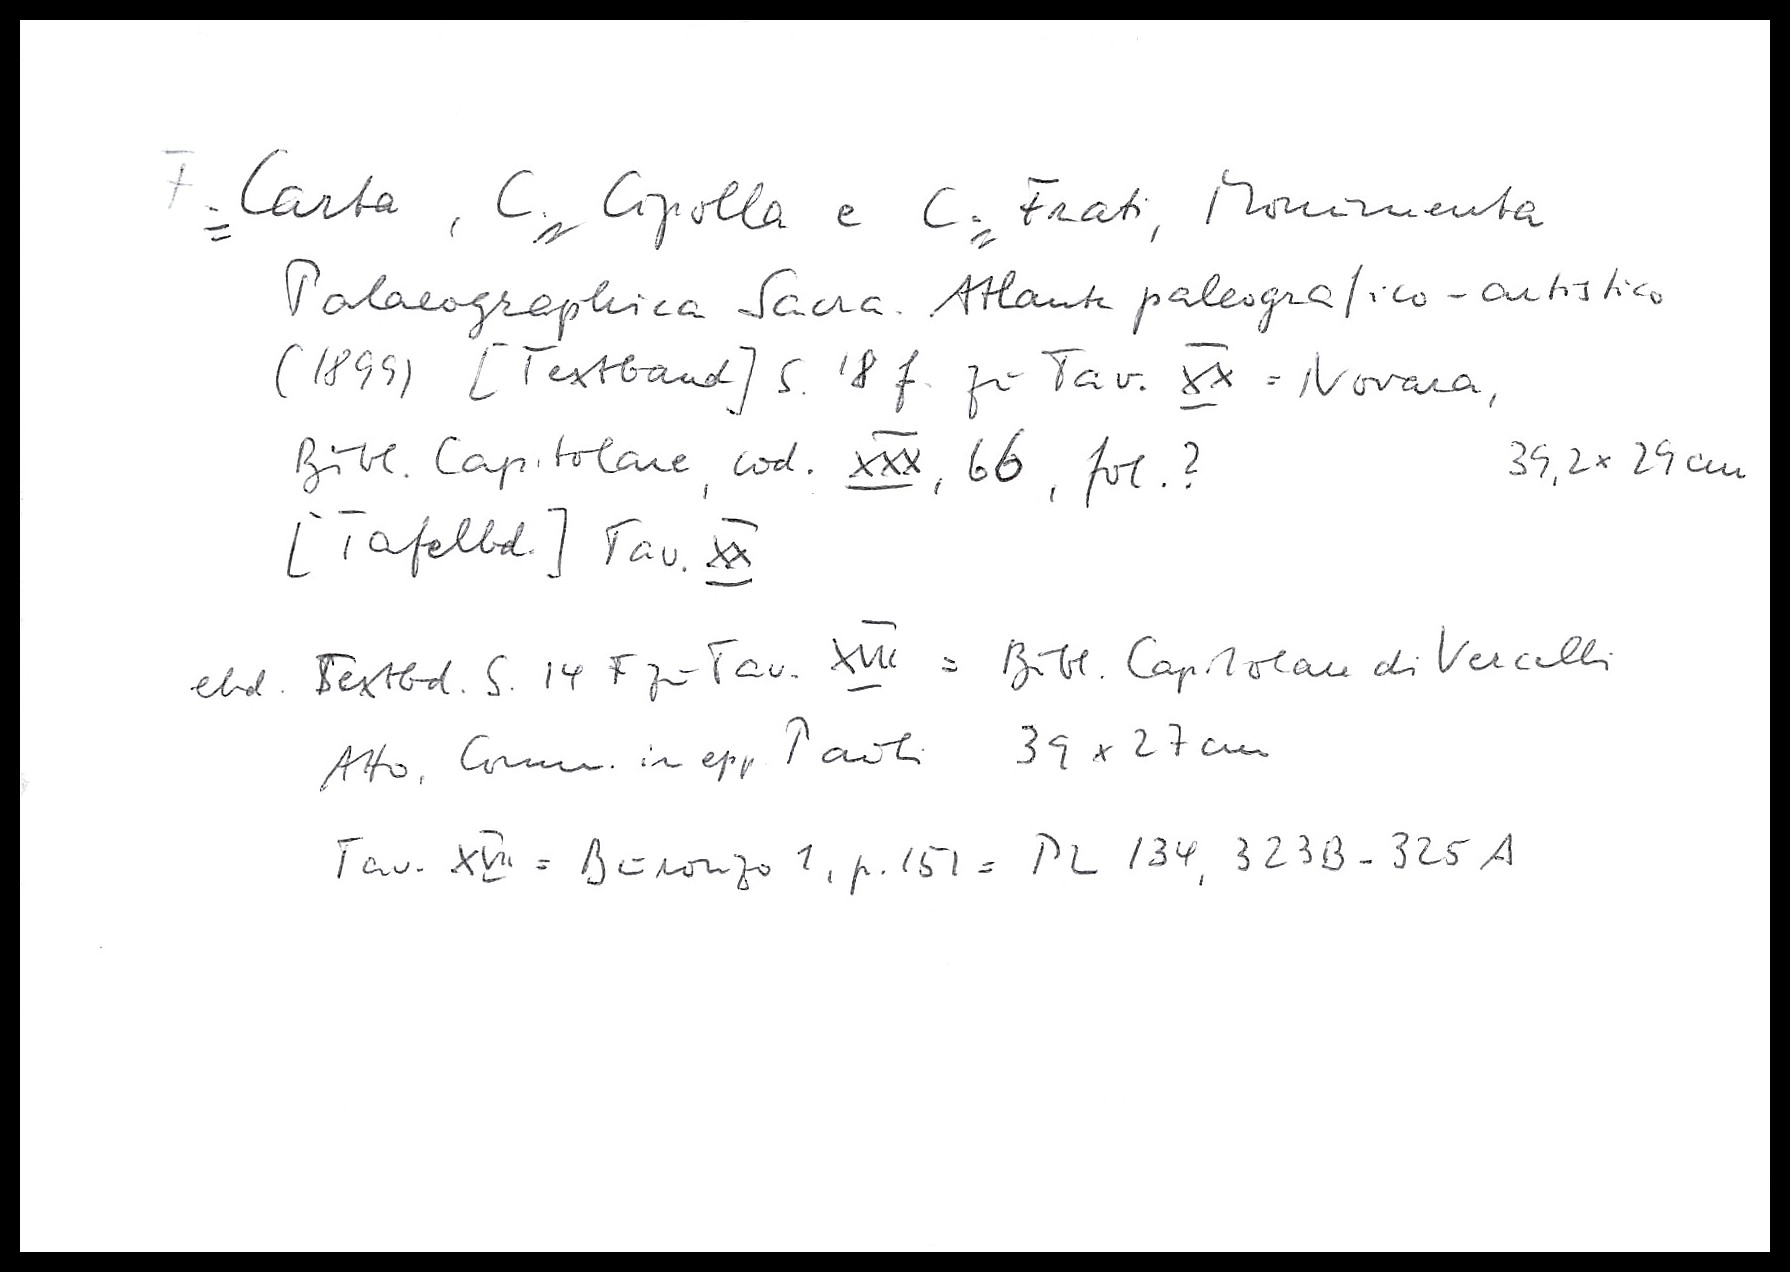 F. Carta, C. Cipolla e C. Frati, Monumenta
Palaeographica Sacra. Atlante paleografico-artistico
(1899) [Textband] S. 18 f. zu Tav. XX = Novara,
Bibl. Capitolare, cod. XXX, 66, fol.? 39,2 x 29 cm
[Tafelbd.] Tav. XX
ebd. Textbd. S. 14 f zu Tav. XVII = Bibl. Capitolare di Vercelli
Atto, Comm. in epp Pauli 39 x 27 cm
Tav. XVII = Buronzo 1, p. 151 = PL 134, 323B-325A